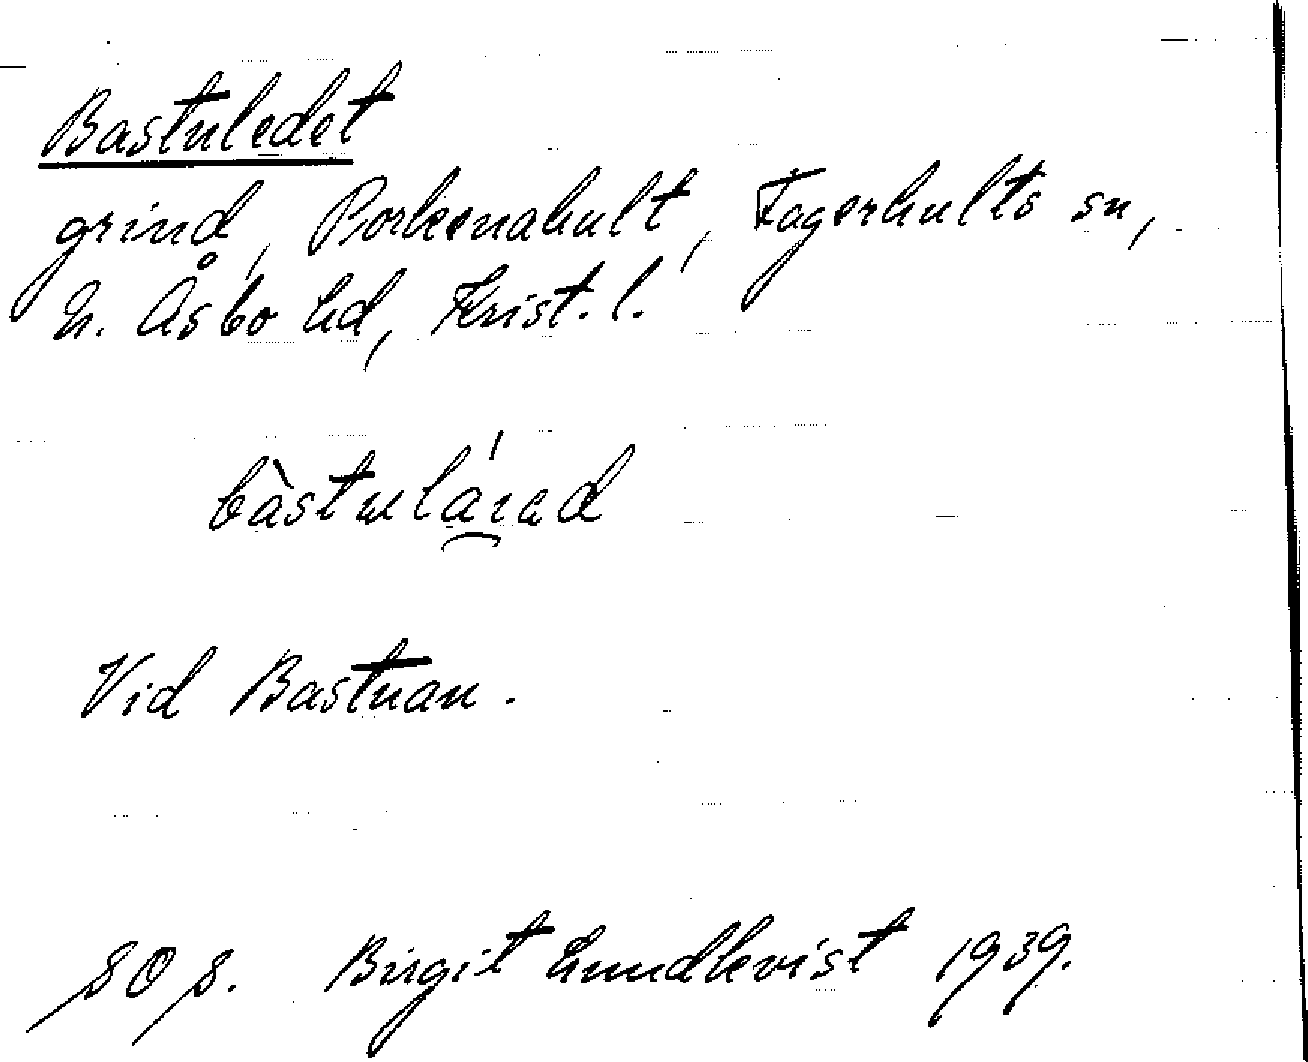 Bastuledet
grind, Porkenahult, Fagerhults sn,
N. Åsbo hd, Krist. l.
bàstulá͜ıad
Vid Bastuan.
SOS. Birgit Lundkvist 1939.